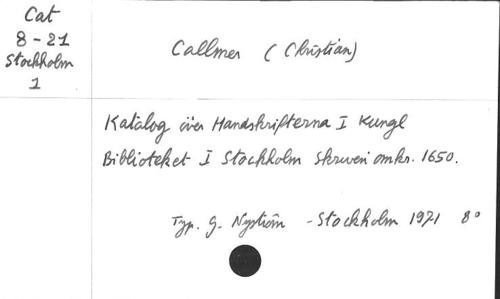 Cat
8-21
Stockholm
1
Callmer (Christian)
Katalog över Handskrifterna I Kungl
Biblioteket I Stockholm Skreven omkr. 1650.
Typ. G. Nyström - Stockholm 1971 8°